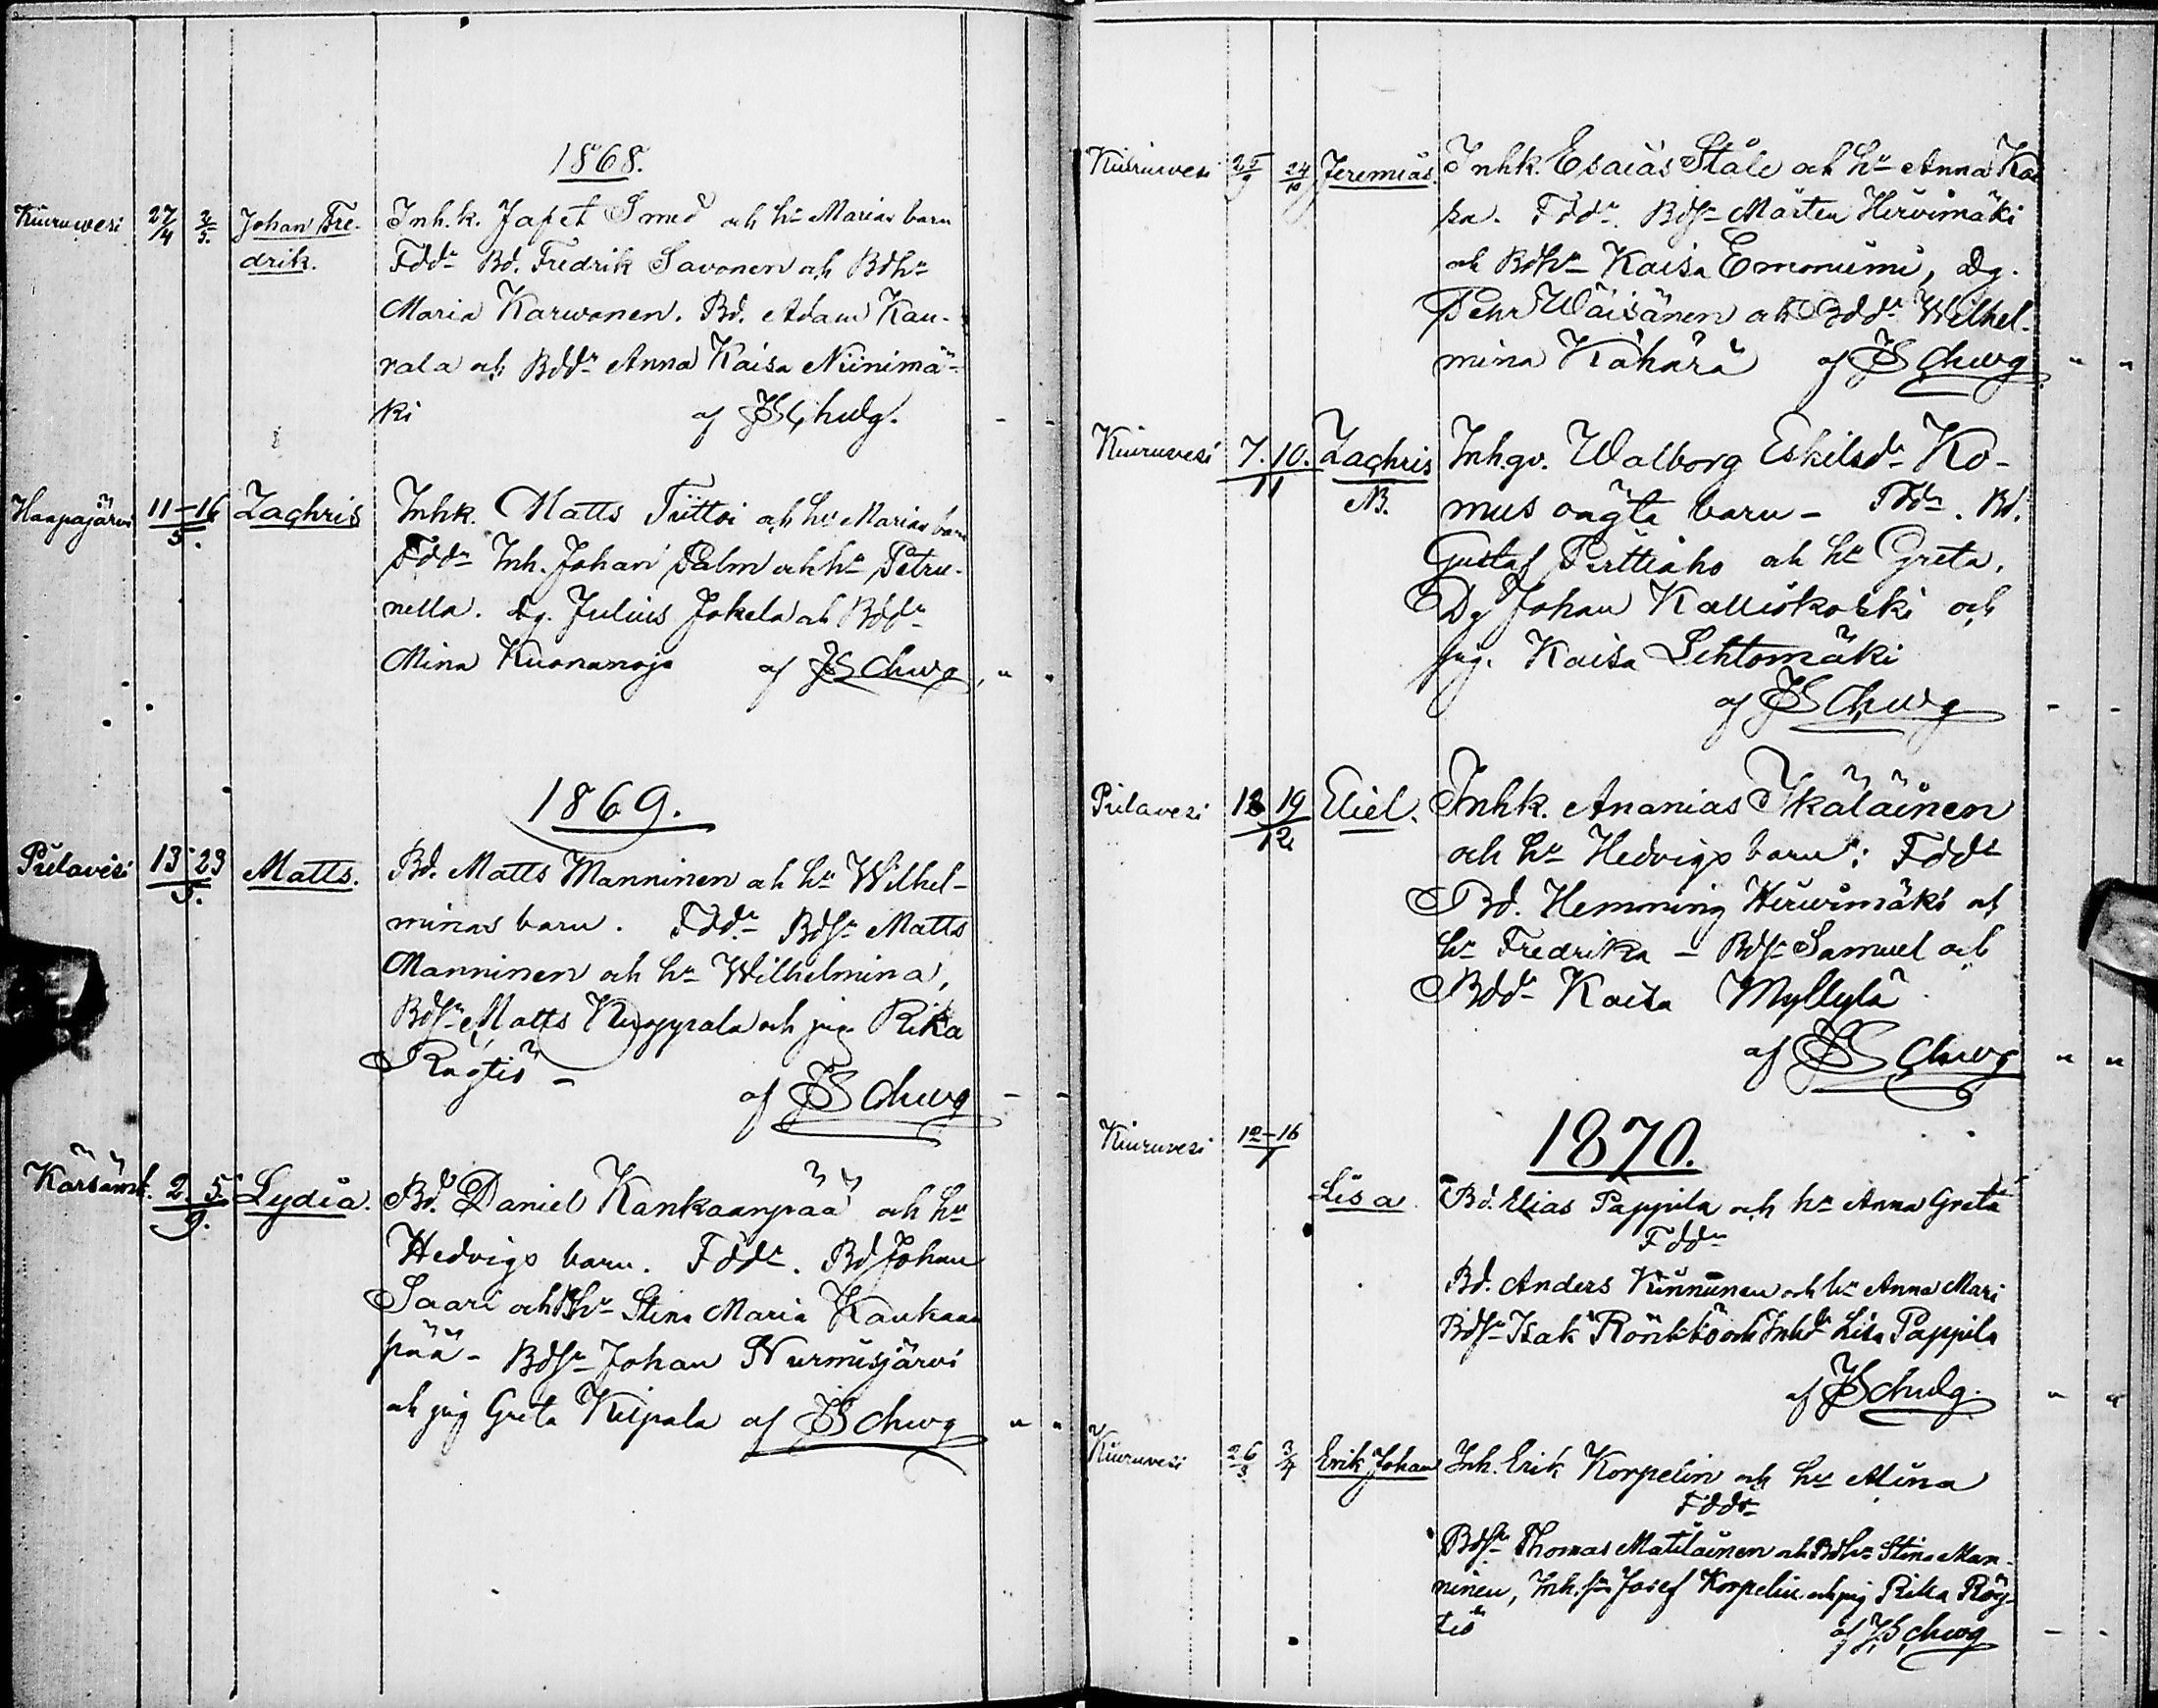 1868.
Kiuruwesi 27/4 2/5. Johan Fre- Inh.k. Jafet Smed och hu Marias barn
drik. Fddr Bd. Fredrik Savonen och Bdhu
Maria Karwonen. Bd. Adam Kau-
rala och Bddr Anna Kaisa Niinimä-
ki af JSchwg.
Haapajärvi 11-16/5. Zachris Inhk. Matts Tiittoi och hu Marias barn
Fddr Inh. Johan Palm och hu Petru-
nella. Dg. Julius Jokela och Bddr
Mina Kuonanoja af JSchwg
1869.
Pielavesi 13 23/5. Matts. Bd. Matts Manninen och hu Wilhel-
minas barn. Fddr Bdsn Matts
Manninen och hu Wilhelmina,
Bdsn Matts Kumpula och pig. Rika
Rögtiö - af JSchwg
Kärsämk. 2. 5./9. Lydia. Bd. Daniel Kankaanpää och hu
Hedvigs barn. Fddr. Bd Johan
Saari och Bhu Stina Maria Kankaan
pää - Bdsn Johan Nurmisjärvi
och pig Greta Kilpala af JSchwg
Kiuruvesi 25/9 24/10 Jeremias. Inhk. Esaias Ståle och hu Anna Kai
sa. Fddr. Bdsn Mårten Hirvimäki
och Bdhu Kaisa Emoniemi, Dg.
Pehr Wäisänen och Bddr Wilhel-
mina Kähärä af JSchwg
Kiuruvesi 7. 10./11 Zachris Inh.qv. Walborg Eskilsdr Ko-
NB. mus oägta barn - Fddr. Bd.
Gustaf Perttiaho och hu Greta,
Dg Johan Kalliokoski och
pig. Kaisa Lehtomäki
af JSchwg
Pielavesi 18 19/12 Eliel. Inhk. Ananias Ikäläinen
och hu Hedvigs barn; Fddr
Bd. Hemming Hirvimäki och
hu Fredrika - Bdsn Samuel och
Bddr Kaisa Myllylä
af JSchwg
Kiuruvesi 12-16/1 1870.
Lisa Bd. Elias Pappila och hu Anna Greta
Fddr
Bd. Anders Kinnunen och hu Anna Mari
Bdsn Isak Rönkkö och Inhdr Lisa Pappila
af JSchwg.
Kiuruvesi 26/3 3/4 Erik Johan Inh. Erik Korpelin och hu Mina
Fddr
Bdsn Thomas Matilainen och Bdhu Stina Man-
ninen, Inh.sn Josef Korpelin och pig Rika Rög-
tiö af JSchwg